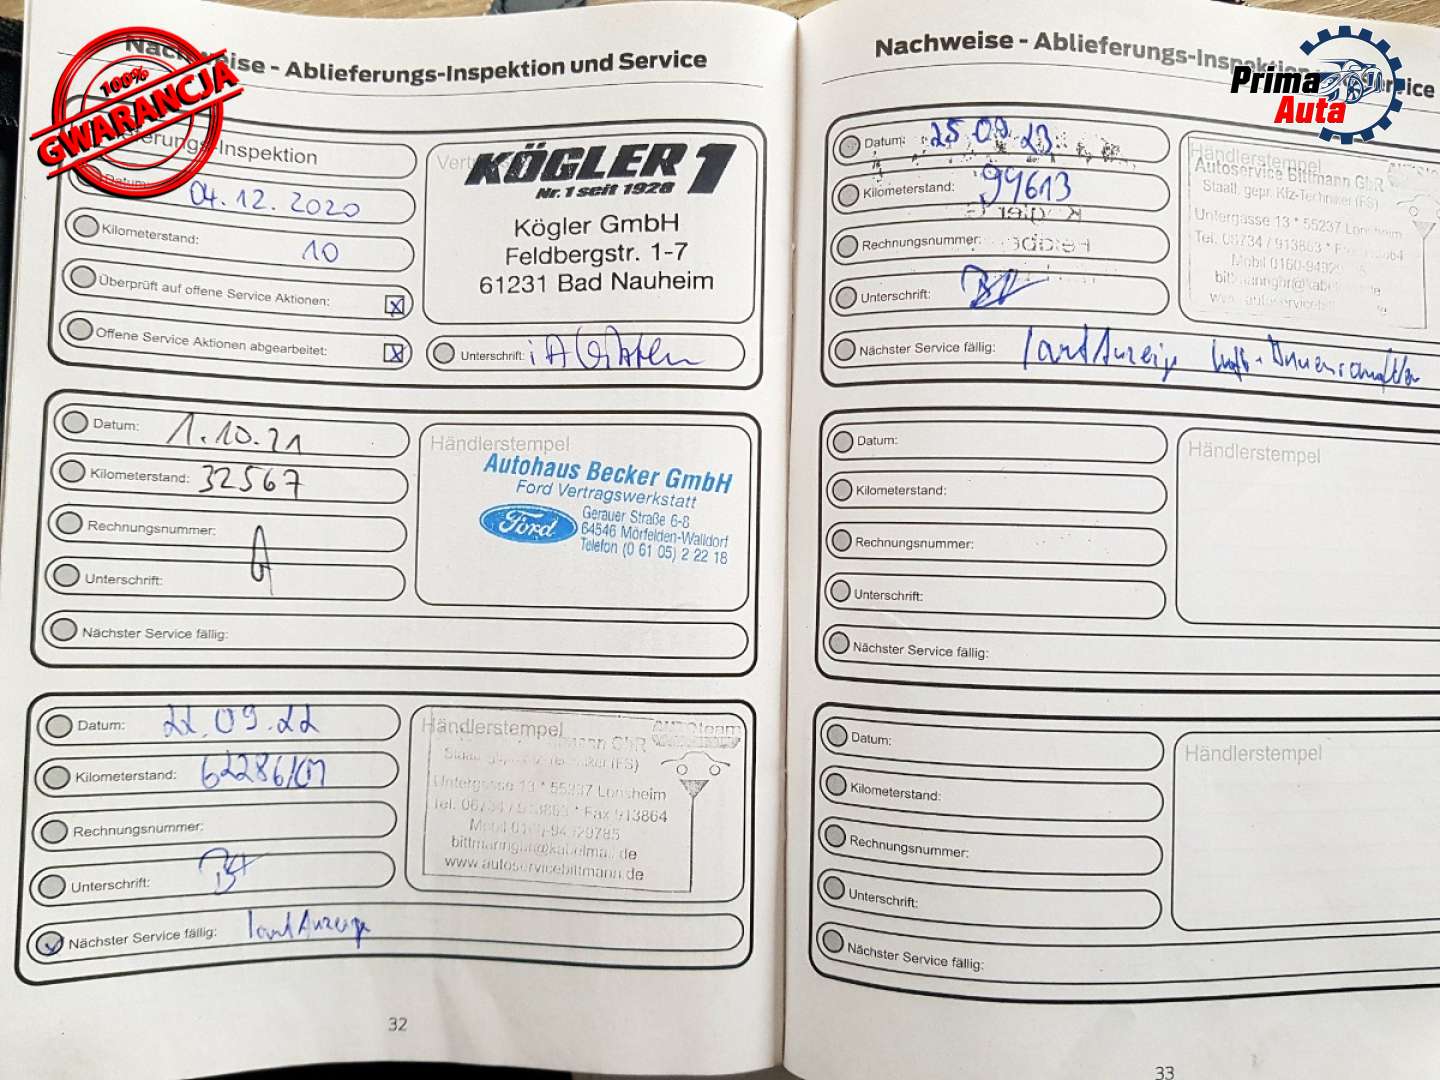 100%
GWARANCJA
Nachweise - Ablieferungs-Inspektion und Service
Inspektion
Datum: 04.12.2020
Kilometerstand: 10
Überprüft auf offene Service Aktionen: X
Offene Service Aktionen abgearbeitet: X
KÖGLER 1
Nr. 1 seit 1928
Kögler GmbH
Feldbergstr. 1-7
61231 Bad Nauheim
Unterschrift:
Datum: 1.10.21
Kilometerstand: 32567
Rechnungsnummer:
Unterschrift:
Nächster Service fällig:
Händlerstempel
Autohaus Becker GmbH
Ford Vertragswerkstatt
Ford
Gerauer Straße 6-8
64546 Mörfelden-Walldorf
Telefon (0 61 05) 2 22 18
Datum: 22.09.22
Kilometerstand: 62286 KM
Rechnungsnummer:
Unterschrift:
Nächster Service fällig: laut Anzeige
Händlerstempel
GbR
(FS)
Untergasse 13 * 55237 Lonsheim
Tel. 06734 / 913863 * Fax 913864
Mobil
www.autoservicebittmann.de
32
Nachweise - Ablieferungs-Inspektion und Service
Prima
Auta
Datum: 25.09.23
Kilometerstand: 99613
Rechnungsnummer:
Unterschrift:
Nächster Service fällig: laut Anzeige
Händlerstempel
Autoservice Bittmann GbR
Staatl. gepr. Kfz-Techniker (FS)
Untergasse 13 * 55237 Lonsheim
Tel. 06734 / 913863
Datum:
Kilometerstand:
Rechnungsnummer:
Unterschrift:
Nächster Service fällig:
Händlerstempel
Datum:
Kilometerstand:
Rechnungsnummer:
Unterschrift:
Nächster Service fällig:
Händlerstempel
33